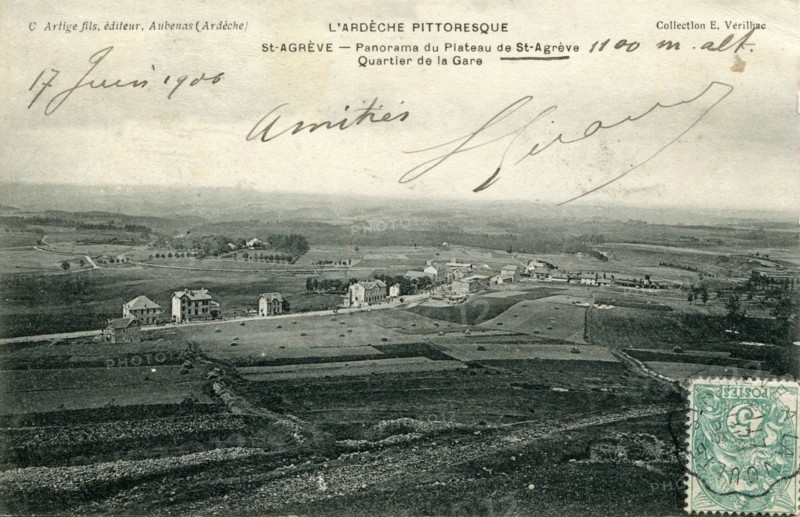 C Artige fils, éditeur, Aubenas (Ardèche)
L'ARDÈCHE PITTORESQUE
Collection E. Vérilhac
St-AGRÈVE — Panorama du Plateau de St-Agrève 1100 m. alt.
Quartier de la Gare
17 Juin 1906
Amitiés
Giraud
POSTES